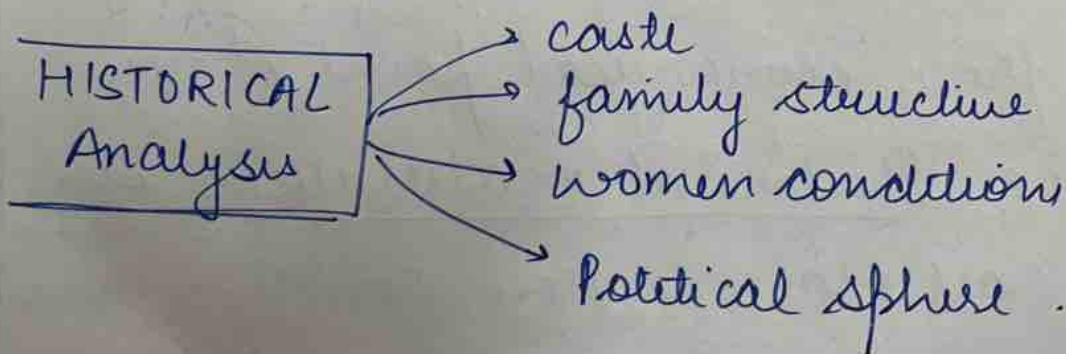 HISTORICAL
Analysis
caste
family structure
women condition
Political sphere.